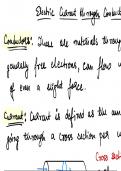 Electric Current through Conduct
Conductors: These are materials throug
generally free electrons, can flow u
of even a slight force.
Current: Current is defined as the am
going through a cross section per u
Cross sect